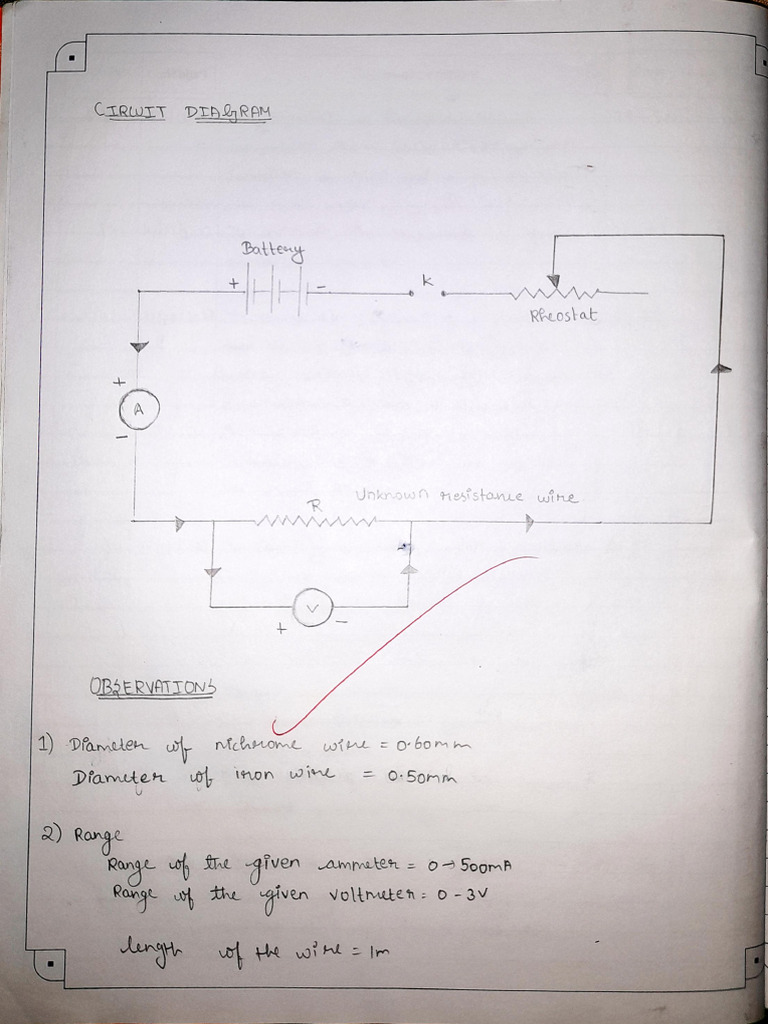 CIRCUIT DIAGRAM
Battery
+ -
K
Rheostat
+
A
-
R Unknown resistance wire
V
+ -
OBSERVATIONS
1) Diameter of nichrome wire = 0.60mm
Diameter of iron wire = 0.50mm
2) Range
Range of the given ammeter = 0→500mA
Range of the given voltmeter = 0-3V
length of the wire = 1m